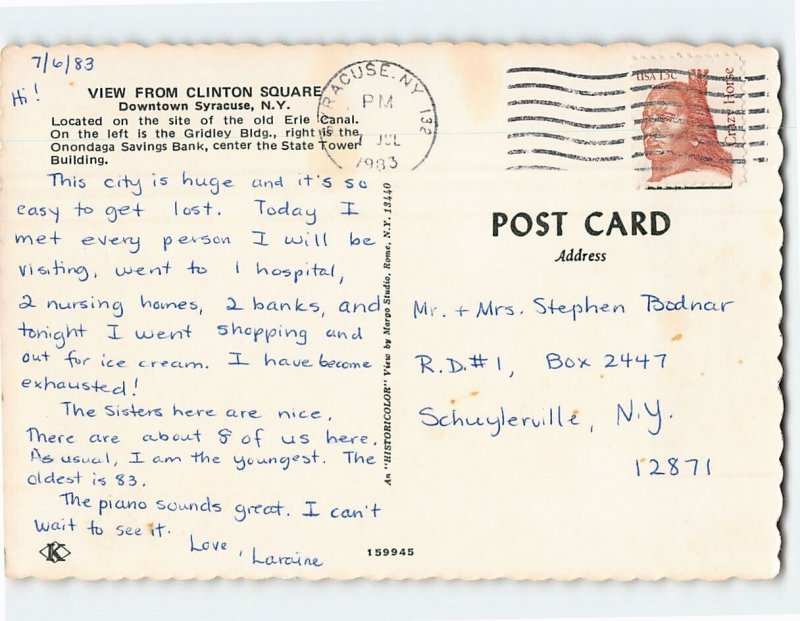 7/6/83
Hi!
VIEW FROM CLINTON SQUARE
Downtown Syracuse, N.Y.
Located on the site of the old Erie Canal.
On the left is the Gridley Bldg., right is the
Onondaga Savings Bank, center the State Tower
Building.
This city is huge and it's so
easy to get lost. Today I
met every person I will be
visiting, went to 1 hospital,
2 nursing homes, 2 banks, and
tonight I went shopping and
out for ice cream. I have become
exhausted!
The Sisters here are nice.
There are about 8 of us here.
As usual, I am the youngest. The
oldest is 83.
The piano sounds great. I can't
wait to see it.
Love, Laraine
K
An "HISTORICOLOR" View by Margo Studio, Rome, N.Y. 13440
159945
RACUSE, NY 132
PM
JUL
1983
USA 13c
Crazy Horse
POST CARD
Address
Mr. + Mrs. Stephen Bodnar
R.D.#1, Box 2447
Schuylerville, N.Y.
12871